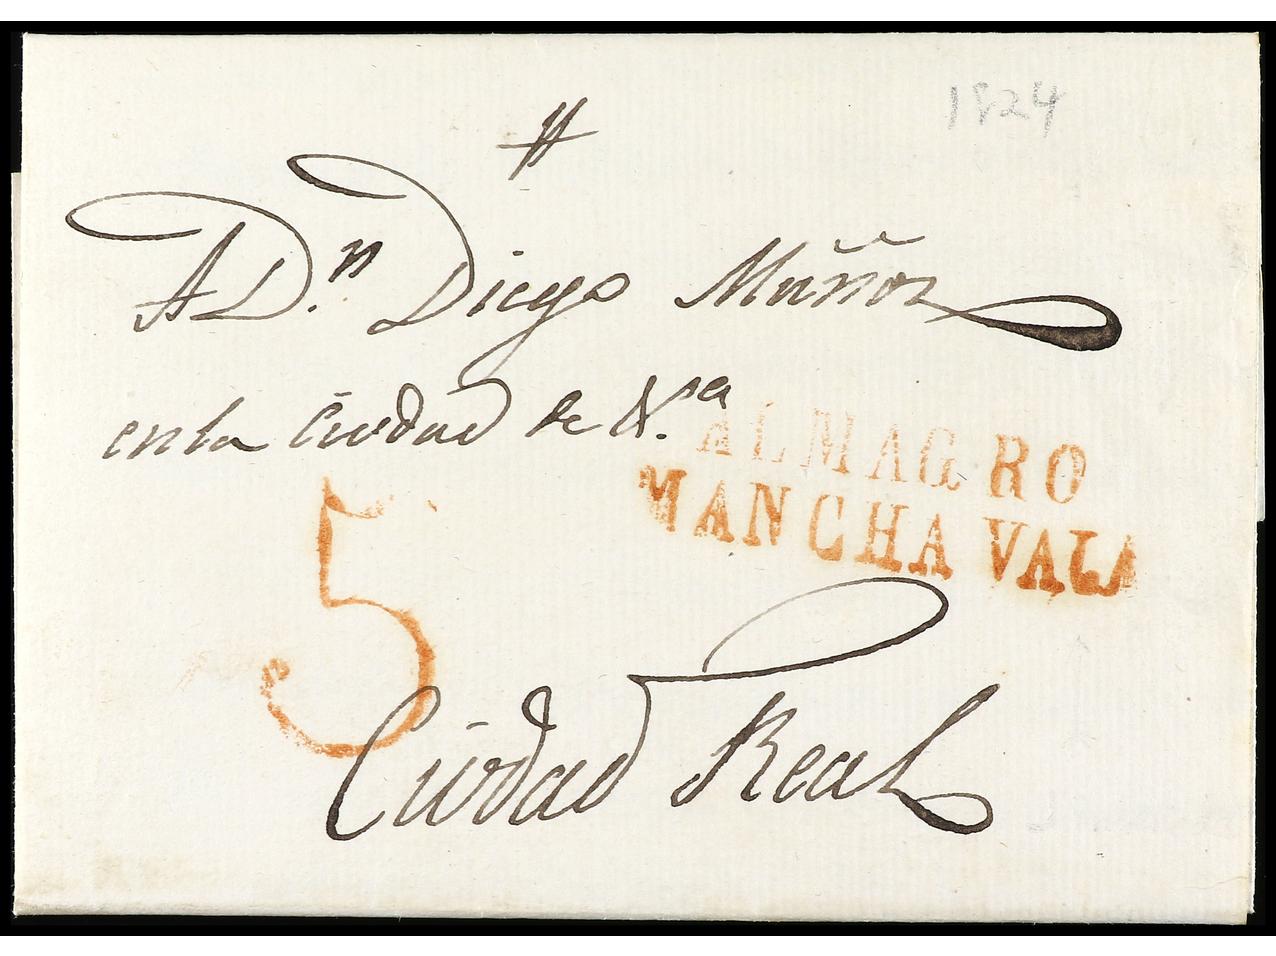 1824
#
A D.n Diego Muñoz
en la Ciudad de &.a
ALMAGRO
MANCHA VALA
5
Ciudad Real